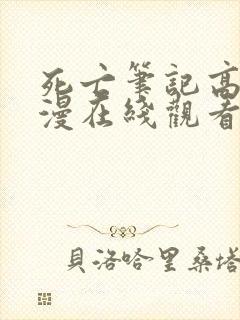 死亡筆記高
漫在綫觀看
貝洛哈里桑塔